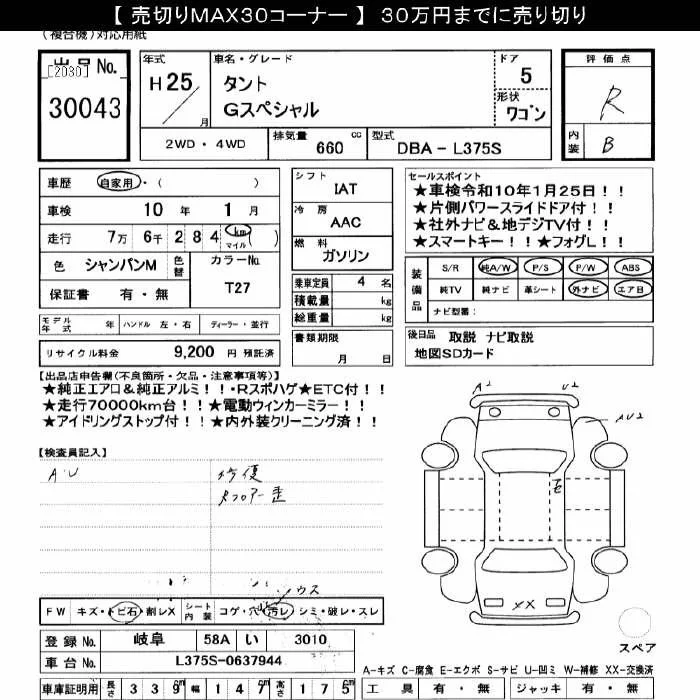 【 売切りMAX30コーナー 】 30万円までに売り切り
(複合機)対応用紙
出品No.
[2030]
30043
年式
H25
月
車名・グレード
タント
Gスペシャル
ドア
5
形状
ワゴン
評価点
R
内装
B
2WD ・ 4WD
排気量 660 cc
型式 DBA - L375S
車歴 自家用・( )
車検 10 年 1 月
走行 7万 6千 2 8 4 km マイル ( )
色 シャンパンM 色替 カラーNo. T27
保証書 有 ・ 無
シフト IAT
冷房 AAC
燃料 ガソリン
乗車定員 4 名
積載量 kg
総重量 kg
セールスポイント
★車検令和10年1月25日！！
★片側パワースライドドア付！！
★社外ナビ&地デジTV付！！
★スマートキー！！★フォグL！！
装備品
S/R 純A/W P/S P/W ABS
純TV 純ナビ 革シート 外ナビ エアB
ナビ型番:
モデル年式 年 ハンドル 左・右 ディーラー・並行
書類期限
月 日
後日品 取説 ナビ取説
地図SDカード
リサイクル料金 9,200 円 預託済
【出品店申告欄(不良箇所・欠品・注意事項等)】
★純正エアロ&純正アルミ！！・Rスポハゲ★ETC付！！
★走行70000km台！！★電動ウィンカーミラー！！
★アイドリングストップ付！！★内外装クリーニング済！！
【検査員記入】
A・U
修復
Rフロアー歪
A2
U2
AU2
E
XX
FW キズ・トビ石・割レX シート内装 コゲ・穴・汚レ・シミ・破レ・スレ
登録No. 岐阜 58A い 3010
車台No. L375S-0637944
スペア
A-キズ C-腐食 E-エクボ S-サビ U-凹ミ W-補修 XX-交換済
車庫証明用 長さ 3 3 9 cm 幅 1 4 7 cm 高さ 1 7 5 cm
工具 有 ・ 無 ジャッキ 有 ・ 無